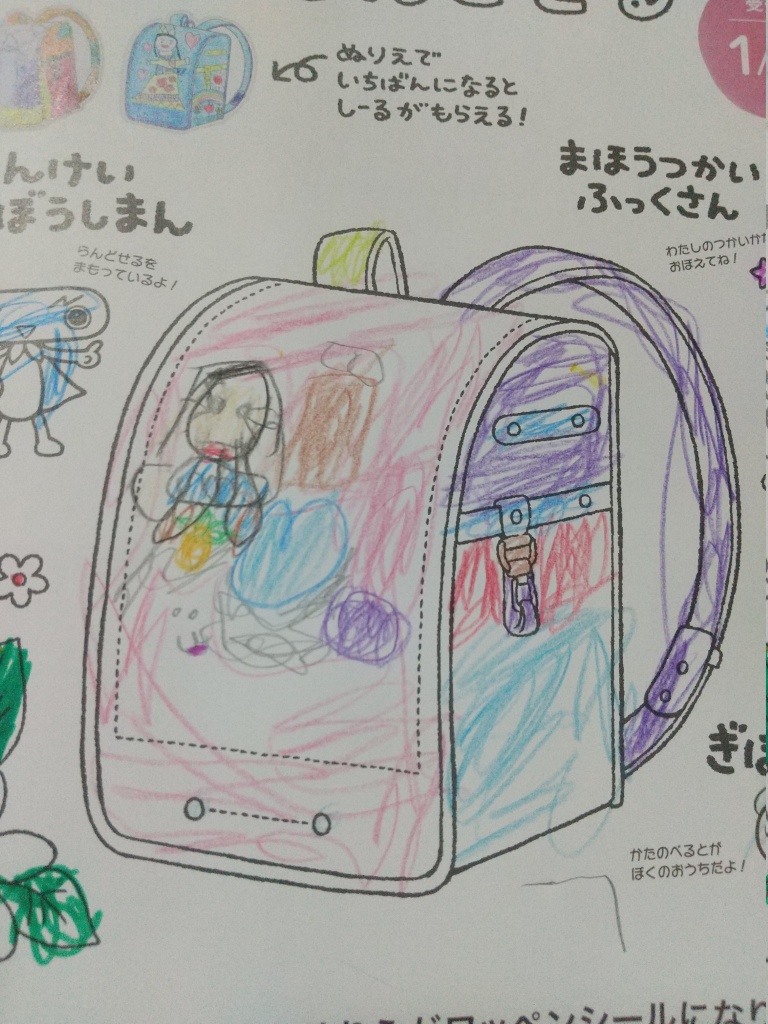 ぬりえで
いちばんになると
しーるがもらえる!
1/
んけい
ぼうしまん
らんどせるを
まもっているよ!
まほうつかい
ふっくさん
わたしのつかいかた
おぼえてね!
ぎ
かたのべるとが
ぼくのおうちだよ!
ワッペンシールにな